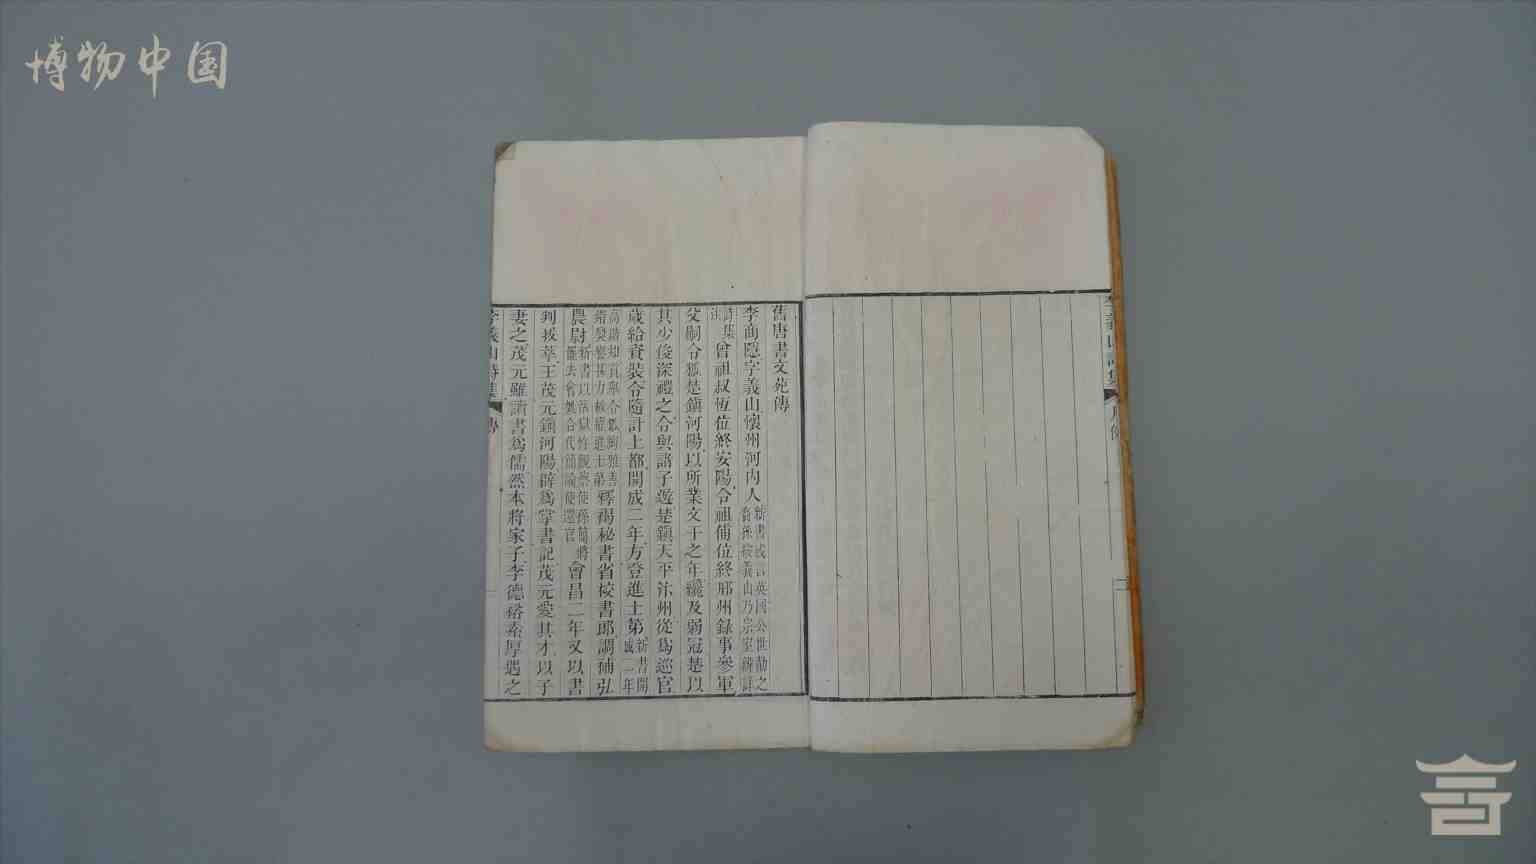 博物中国
舊唐書文苑傳
李商隱字義山懷州河内人新書或言英國公世勣之裔孫按義山乃宗室辨詳
詩集注曾祖叔恆位終安陽令祖俌位終邢州錄事參軍
父嗣令狐楚鎮河陽以所業文干之年纔及弱冠楚以
其少俊深禮之令與諸子遊楚鎮天平汴州從爲巡官
歲給資裝令隨計上都開成二年方登進士第新書開成二年
高鍇知貢舉令狐綯雅善鍇奬譽甚力故擢進士第釋褐秘書省校書郎調補弘
農尉新書以活獄忤觀察使孫簡將罷去會姚合代簡諭使還官會昌二年又以書
判拔萃王茂元鎮河陽辟爲掌書記茂元愛其才以子
妻之茂元雖讀書爲儒然本將家子李德裕素厚遇之
李義山詩集 傳